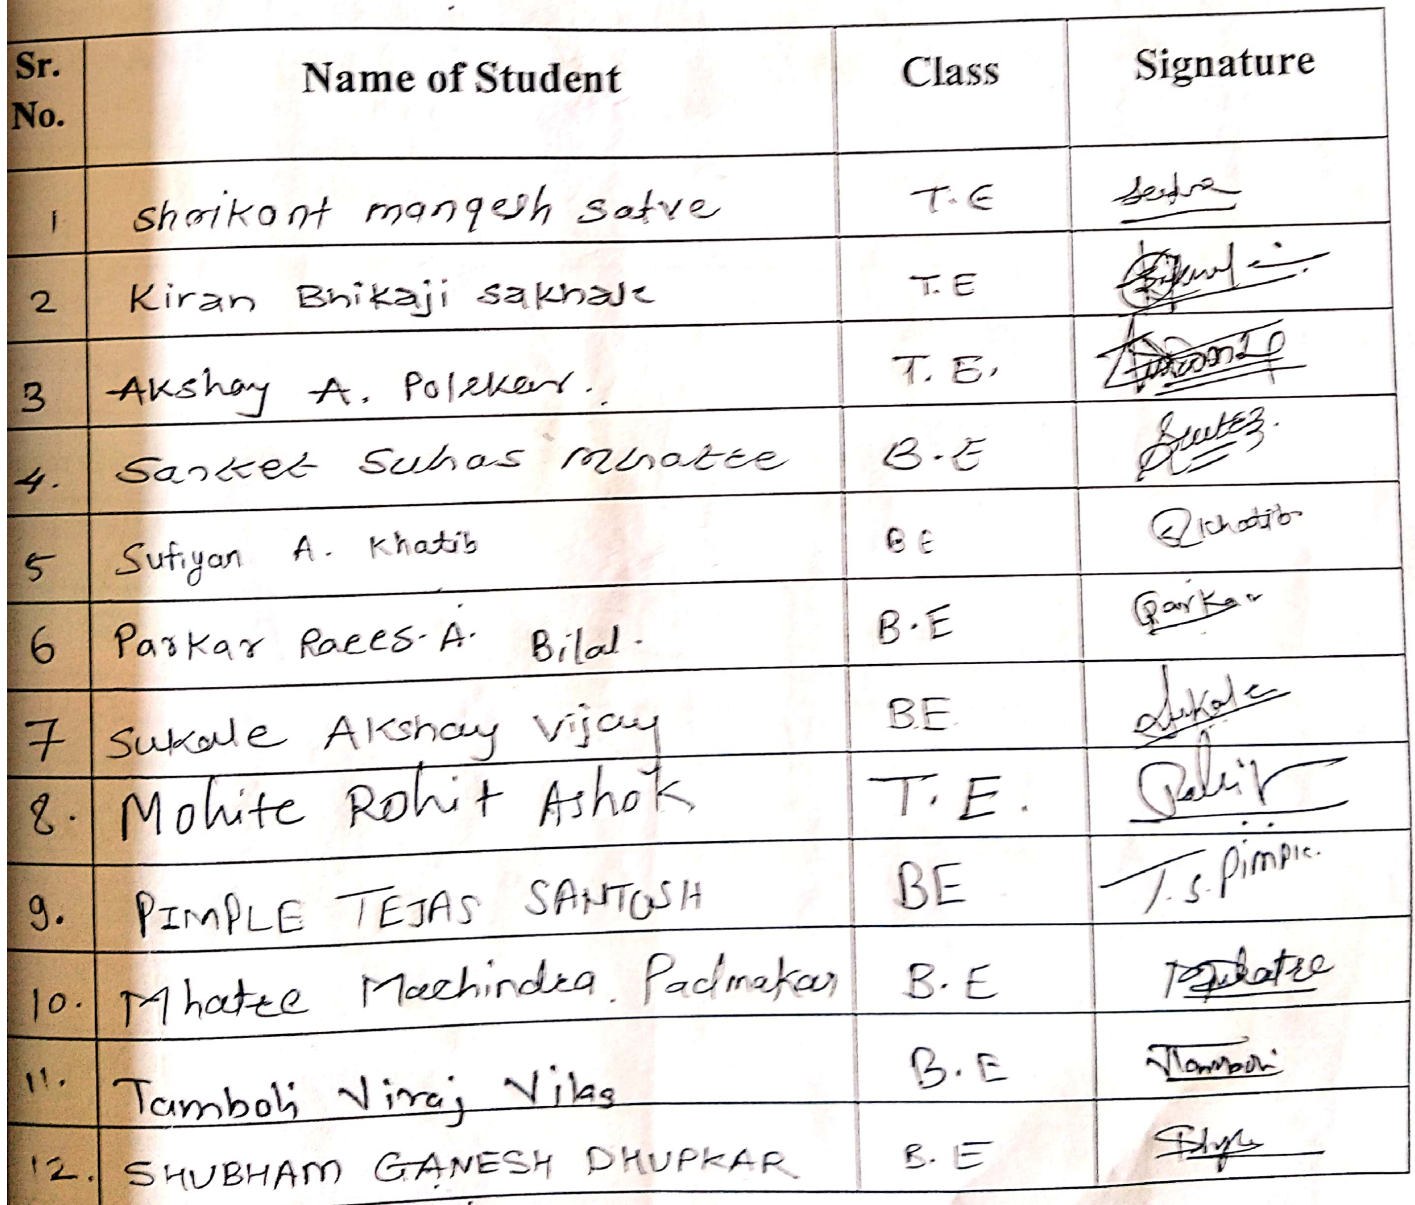 Sr. No. Name of Student Class Signature
1 Shrikant mangesh satve T.E satve
2 Kiran Bhikaji sakhale T.E
3 Akshay A. Polekar. T.E.
4. Sanket Suhas Mhatre B.E
5 Sufiyan A. Khatib BE Khatib
6 Parkar Raees. A. Bilal. B.E Parkar
7 Sukale Akshay Vijay BE Sukale
8. Mohite Rohit Ashok T.E. Rohit
9. PIMPLE TEJAS SANTOSH BE T.S. Pimple.
10. Mhatre Machindra. Padmakar B.E Mhatre
11. Tamboli Viraj Vilas B.E Tamboli
12. SHUBHAM GANESH DHUPKAR B.E